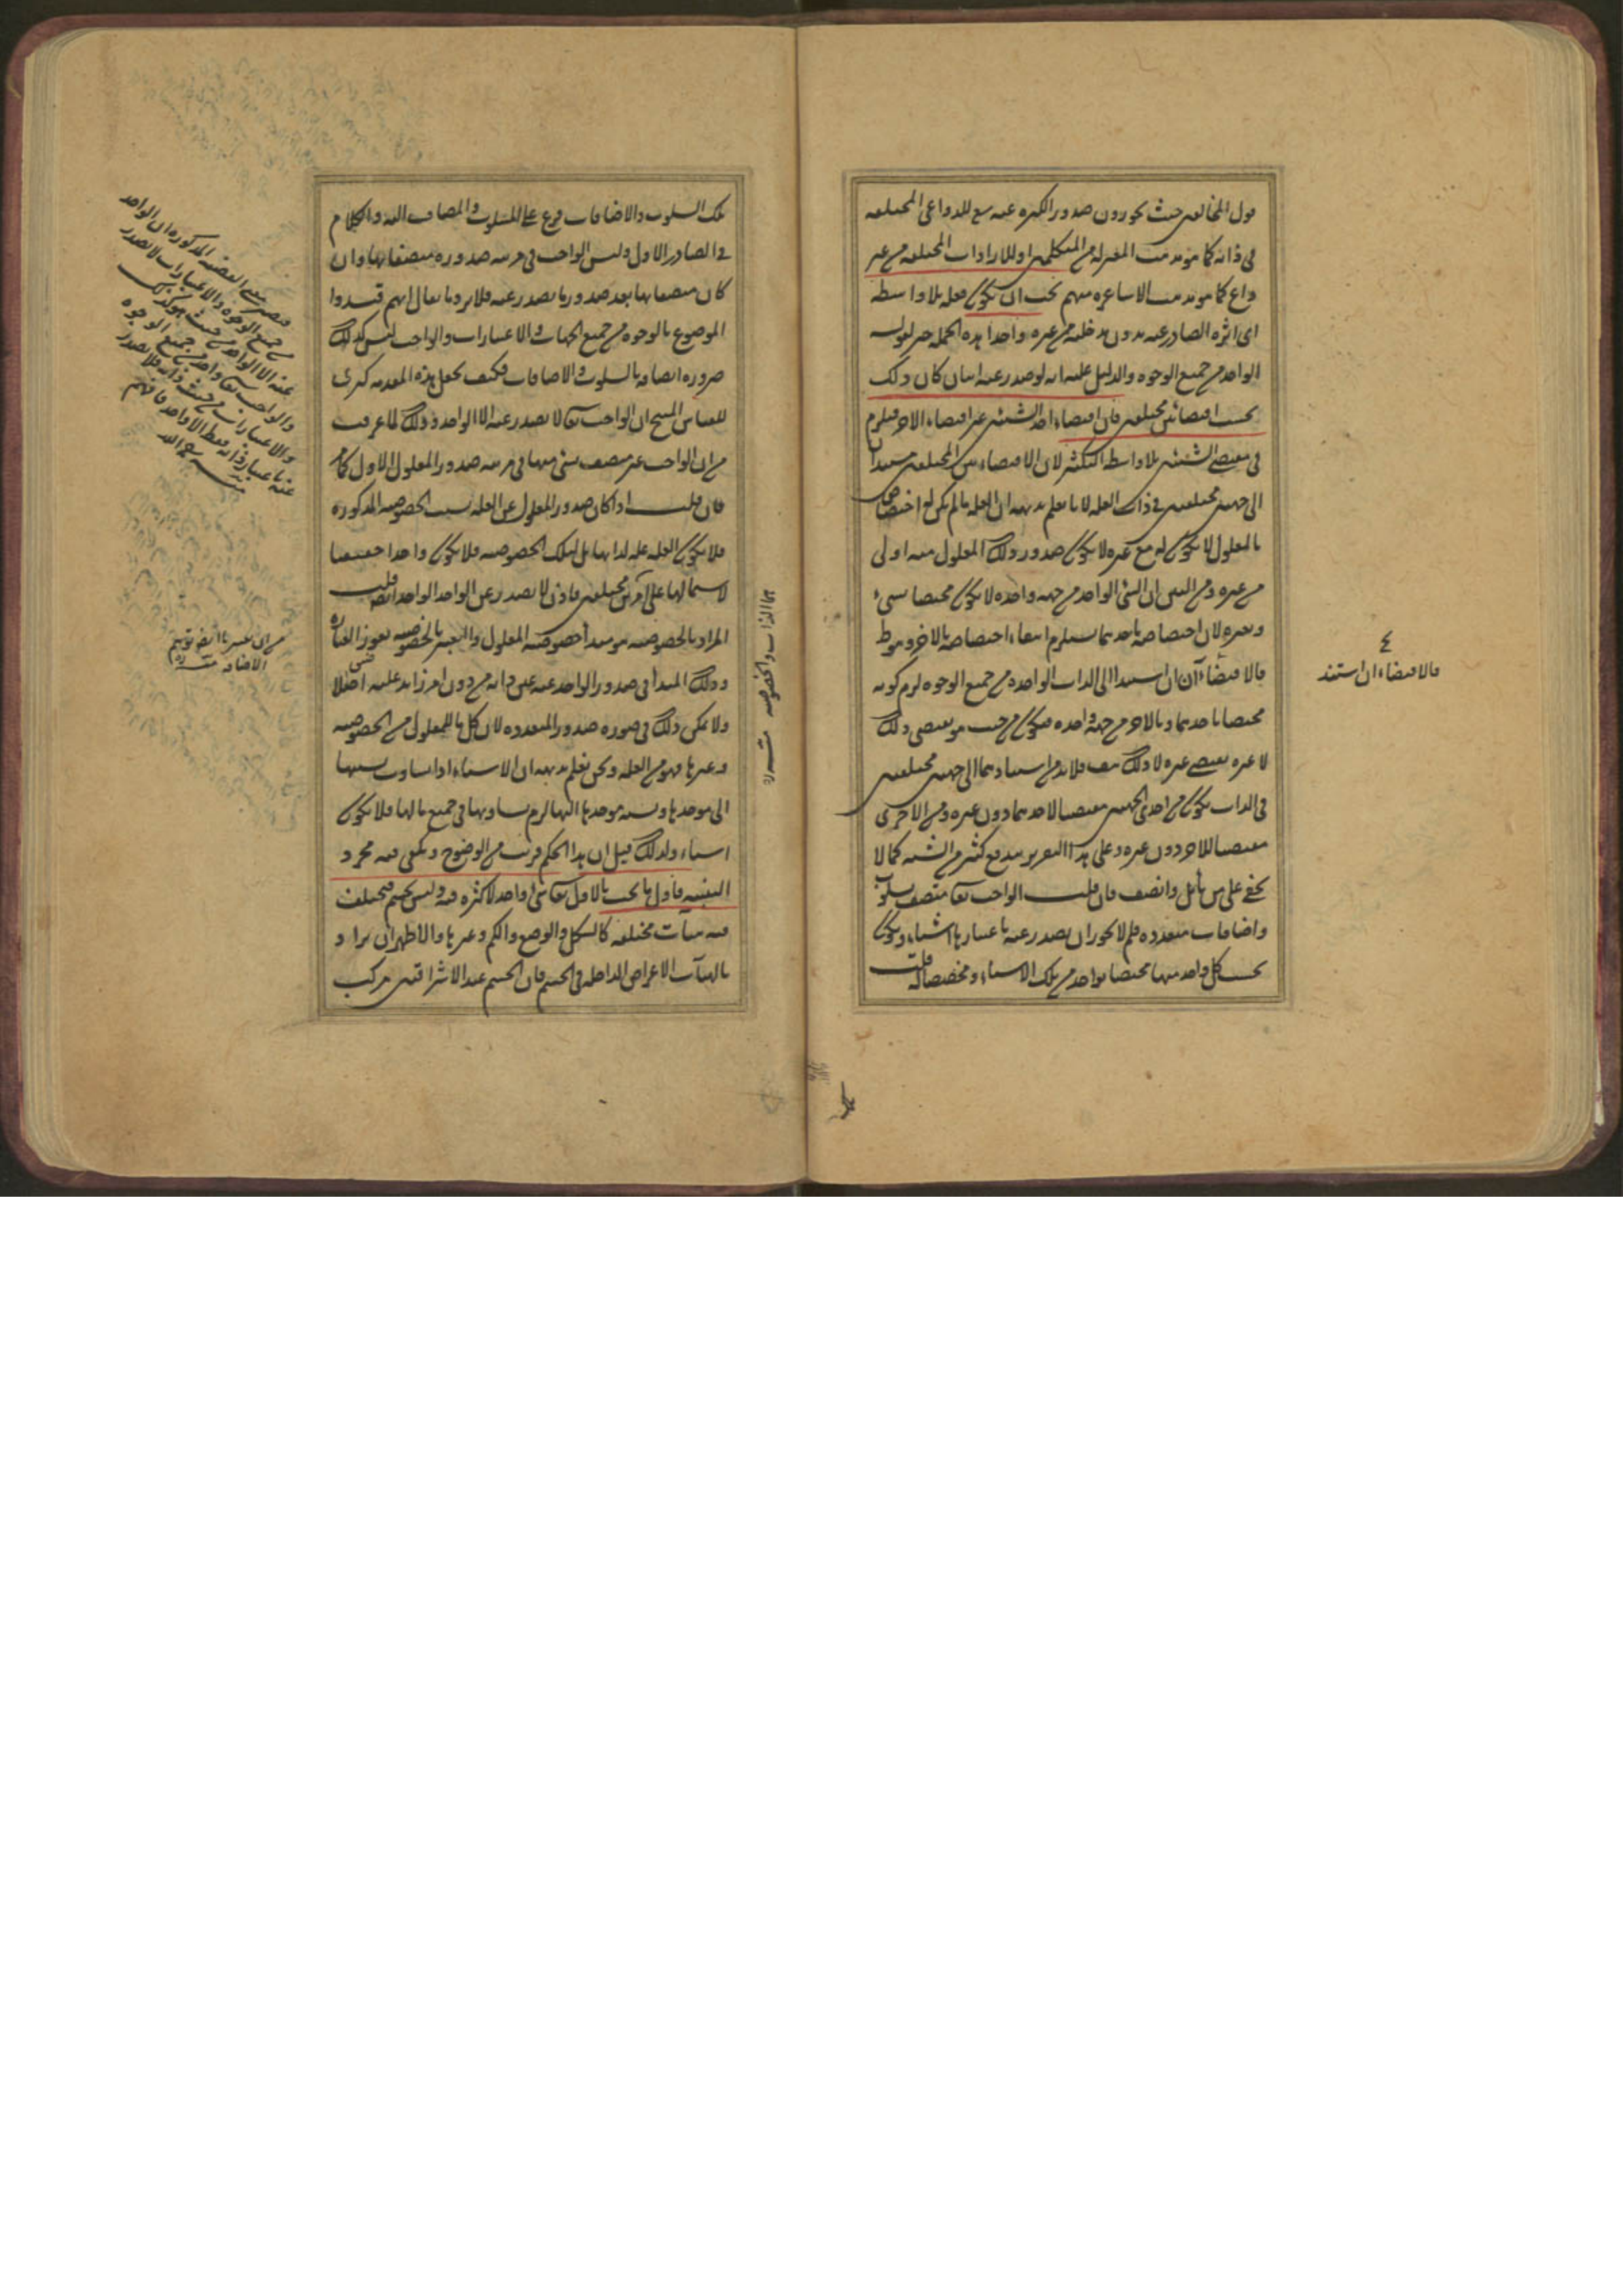 قول المخالفين حيث يجوزون صدور الكثرة عنه مع للدواعى المختلفة
فى ذاته كما هو مذهب المعتزلة من المتكلمين او للارادات المختلفة من غير
داع كما هو مذهب الاشاعرة منهم يجب ان يكون فعله بلا واسطة
اى اثره الصادر عنه بدون مدخلية من غيره واحدا هذه الجملة خبر لقوله
الواحد من جميع الوجوه والدليل عليه انه لو صدر عنه اثنان كان ذلك
بحسب اقتضائين مختلفين فان اقتضاء احد الشيئين غير اقتضاء الاخر فيلزم
فى مقتضى الشيئين بلا واسطة التكثر لان الاقتضاءين المختلفين يستندان
الى جهتين مختلفتين فى ذات العلة لانا نعلم بديهة ان العلة ما لم يكن لها اختصاص
بالمعلول لا يكون له مع غيره لا يكون صدور ذلك المعلول منه اولى
من غيره ومن البين ان الشئ الواحد من جهة واحدة لا يكون مختصا بشىء
وبغيره لان اختصاصه باحدهما يستلزم انتفاء اختصاصه بالاخر وهو ظ
فالاقتضاءآن ان استندا الى الذات الواحدة من جميع الوجوه لزم كونه
مختصا باحدهما وبالاخر من جهة واحدة فيكون من حيث هو يقتضى ذلك
لا غيره يقتضى غيره لا ذلك هف فلا بد من استنادهما الى جهتين مختلفتين
فى الذات يكون من احدى الجهتين مقتضيا لاحدهما دون غيره ومن الاخرى
مقتضيا للاخر دون غيره وعلى هذا التقرير يندفع كثير من الشبه كما لا
يخفى على من تأمل وانصف فان قلت الواجب تعا متصف بسلوب
واضافات متعددة فلم لا يجوز ان يصدر عنه باعتبارها اشياء ويكون
بحسب كل واحد منها مختصا بواحد من تلك الاشياء ومخصصا له قلت
فالاقتضاءان استند
تلك السلوب والاضافات فرع على المسلوب والمضاف اليه والكلام
فى الصادر الاول وليس الواجب فى مرتبة صدوره متصفا بها وان
كان متصفا بها بعد صدور ما يصدر عنه فلا يرد ما يقال انهم قيدوا
الموضوع بالوحدة من جميع الجهات والاعتبارات والواجب ليس كذلك
ضرورة اتصافه بالسلوب والاضافات فكيف يجعل هذه المقدمة كبرى
للقياس المنتج ان الواجب تعا لا يصدر عنه الا الواحد وذلك لما عرفت
من ان الواجب غير متصف بشئ منها فى مرتبة صدور المعلول الاول كما مر
فان قلت اذا كان صدور المعلول عن العلة بسبب الخصوصية المذكورة
فلا يكون العلة علة لذاتها بل لتلك الخصوصية فلا يكون واحدا حقيقيا
لاشتمالها على امرين مختلفين فاذن لا يصدر عن الواحد الواحد ايضا قلت
المراد بالخصوصية هو مبدأ خصوصية المعلول والتعبير بالخصوصية لعوز العبارة
وذلك المبدأ فى صدور الواحد عنه عين ذاته من دون امر زايد عليه اصلا
ولا يمكن ذلك فى صورة صدور المتعددة لان كل ما للمعلول من الخصوصية
وغيرها فهو من العلة ونحن نعلم بديهة ان الاشياء اذا تساوت نسبتها
الى موجدها ونسبة موجدها اليها لزم تساويها فى جميع ما لها فلا يكون
اشياء ولذلك قيل ان هذا الحكم قريب من الوضوح ويكفى فيه مجرد
التنبيه فاول ما يجب بالاول تعا شئ واحد لا كثرة فيه وليس بجسم فيختلف
فيه هيآت مختلفة كالشكل والوضع والكم وغيرها والاظهر ان يراد
بالهيآت الاعراض الداخلة فى الجسم فان الجسم عند الاشراقيين مركب
هما الذات والخصوصية منه ره
فيصير معنى القضية المذكورة ان الواحد
من جميع الوجوه والاعتبارات لا يصدر
عنه الا الواحد من حيث هو كذلك
والواجب تعا واحد من جميع الوجوه
والاعتبارات من حيث ذاته فلا يصدر
عنه باعتبار ذاته فقط الا واحد فافهم
منه رحمه الله
من ان تفسير ايضا توهم
الاضافة منه ره